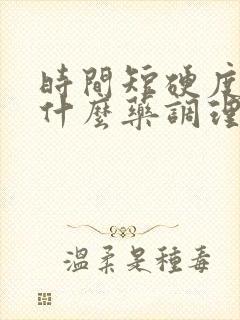 時間短硬度
什麼藥調理
溫柔是種毒